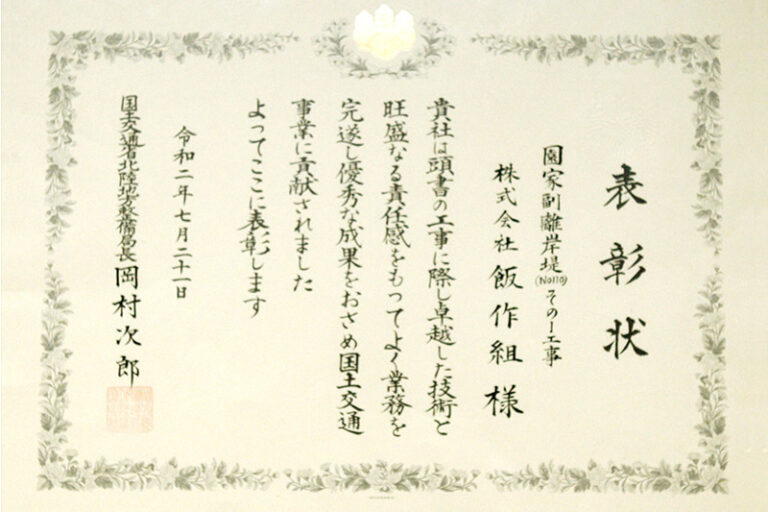 表彰状
園家副離岸堤(No110)その1工事
株式会社 飯作組 様
貴社は頭書の工事に際し卓越した技術と
旺盛なる責任感をもってよく業務を
完遂し優秀な成果をおさめ国土交通
事業に貢献されました
よってここに表彰します
令和二年七月二十一日
国土交通省北陸地方整備局長 岡村次郎